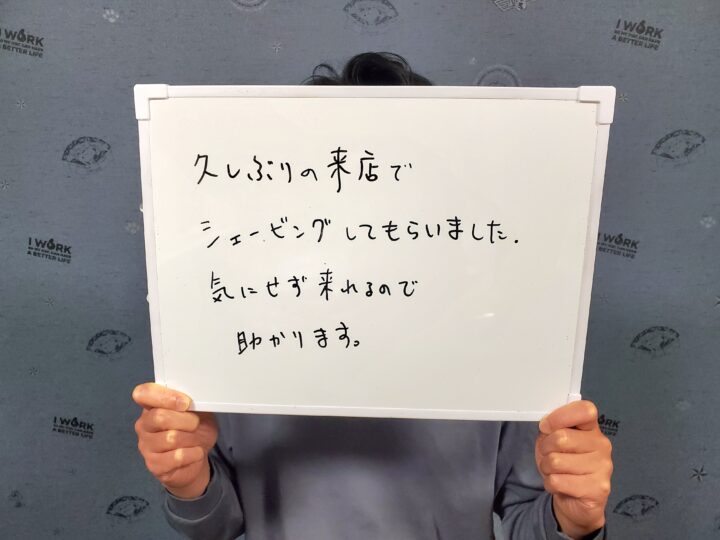 久しぶりの来店で
シェービングしてもらいました.
気にせず来れるので
助かります。
I WORK
A BETTER LIFE
I WORK
A BETTER LIFE
I WORK
A BETTER LIFE
I WORK
A BETTER LIFE
I WORK
A BETTER LIFE
I WORK
A BETTER LIFE